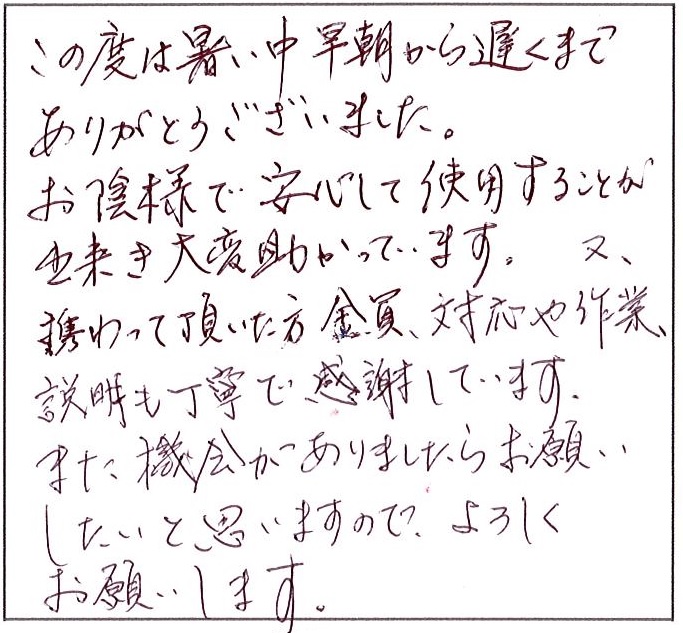 この度は暑い中早朝から遅くまで
ありがとうございました。
お陰様で安心して使用することが
出来き大変助かっています。 又、
携わって頂いた方全員、対応や作業、
説明も丁寧で感謝しています。
また機会がありましたらお願い
したいと思いますので、よろしく
お願いします。